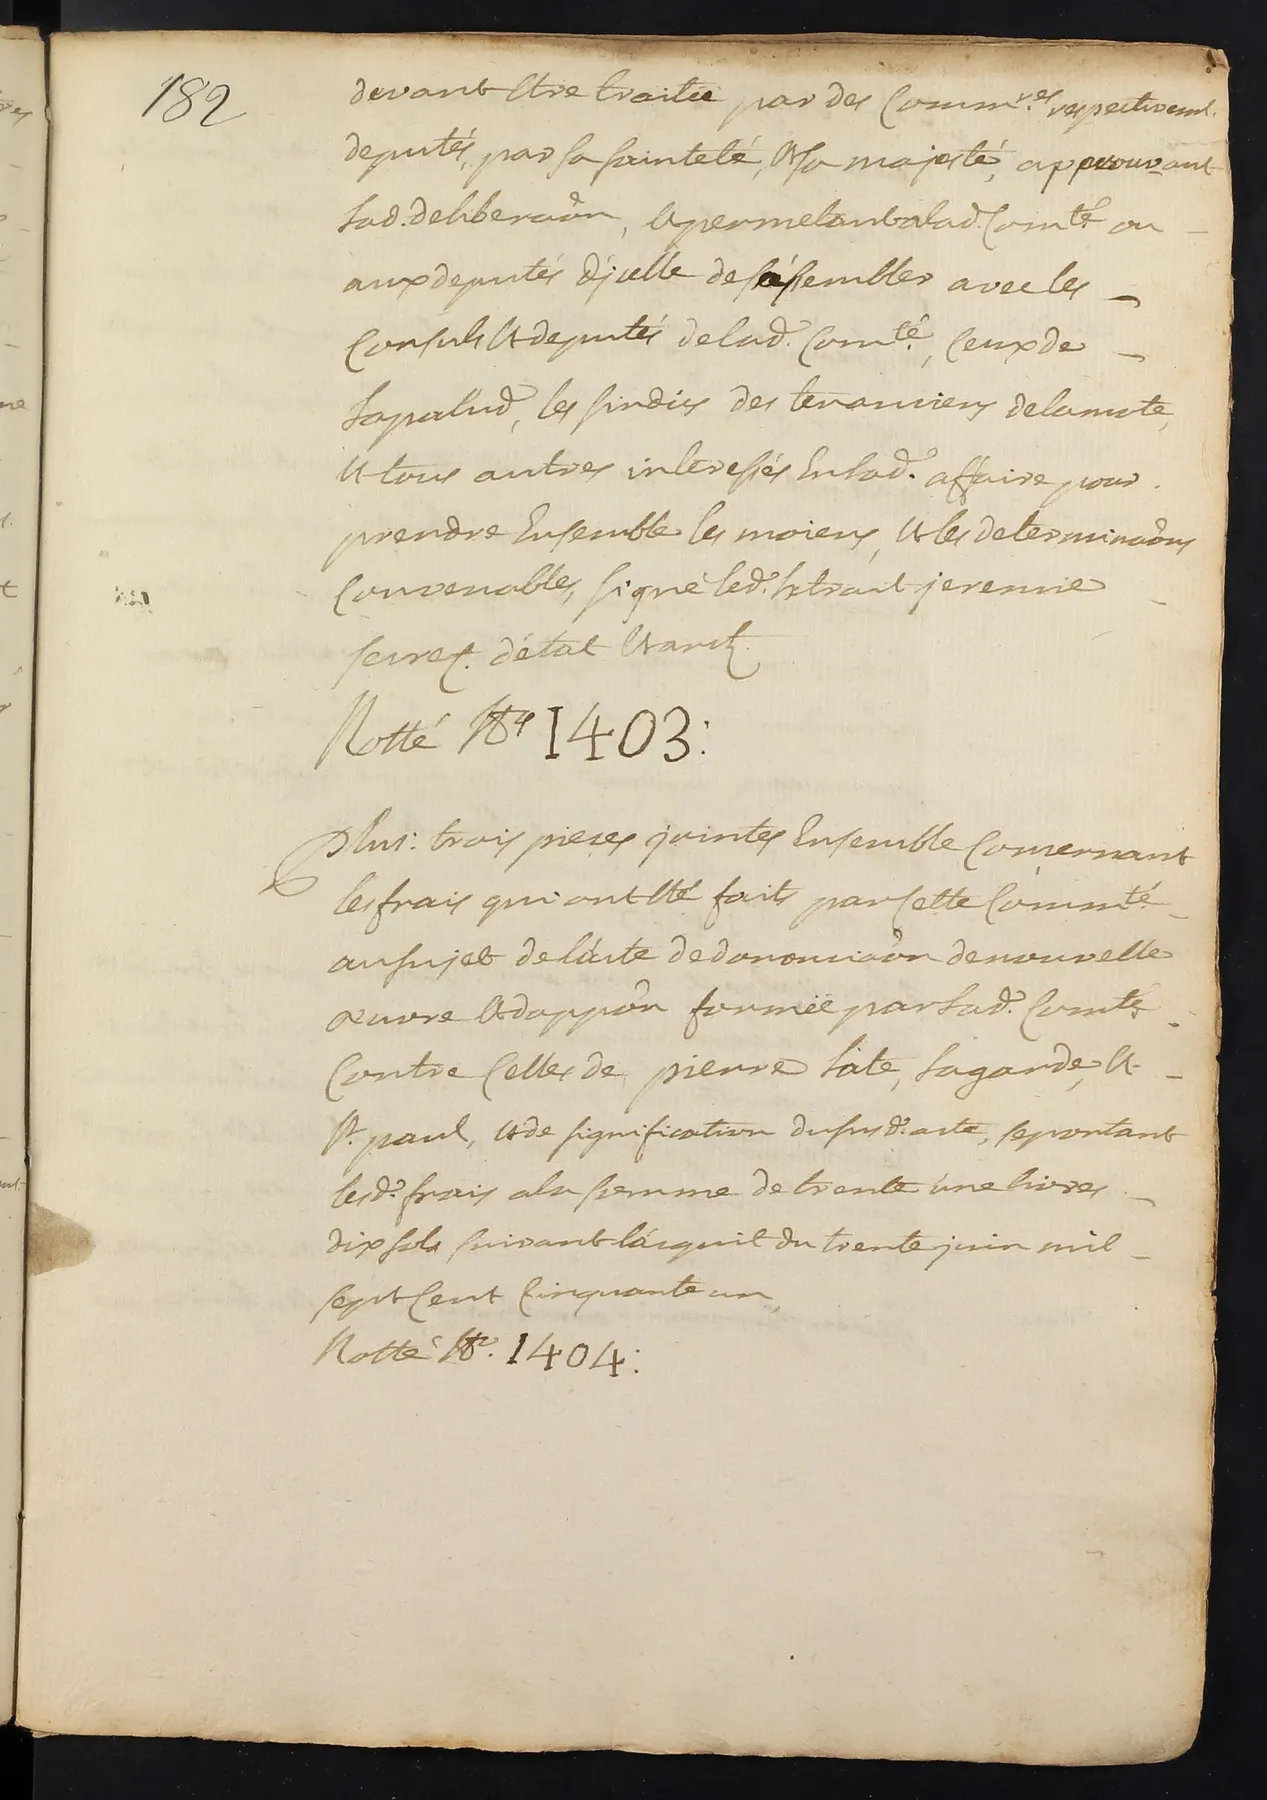 182
devant Etre traitée par des Comm.res respectivemt.
deputés, par sa sainteté, & sa majesté, approuvant
lad. deliberaôn, & permetant alad. Comté. ou
aux deputés d'jcelle de s'assembler avec les
Consuls & deputés de lad. Comté., Ceux de
Lapalud, les sindics des tenanciers de lamote,
& tous autres interessés En lad. affaire pour
prendre Ensemble les moiens, & les determinaôns
Convenables, signé led. Extrait jeremie
secret. d'état & arch.
Notté N° 1403:
Plus: trois pieces jointes Ensemble Concernant
les frais qui ont Eté faits par Cette Commté.
au sujet de l'acte de denonciaôn de nouvelle
œuvre & d'appôn formée par lad. Comté.
Contre Celles de pierre late, Lagarde, &
St. paul, & de signification du susd. acte, se portant
lesd. frais ala somme de trente une livres
dix sols suivant l'acquit du trente juin mil
sept Cent Cinquante un,
Notté N°. 1404: